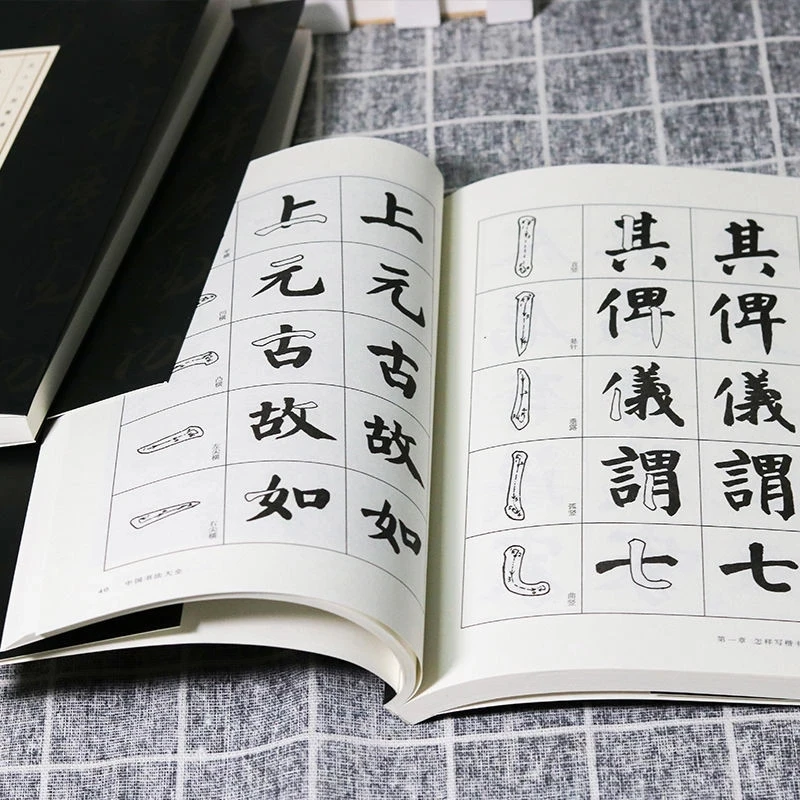 上 上
凹横 元 元
凸横 古 古
左尖横 故 故
右尖横 如 如
40 中国书法大全
直竖 其 其
悬针 俾 俾
垂露 儀 儀
弧竖 謂 謂
曲竖 七 七
第一章 怎样写楷书